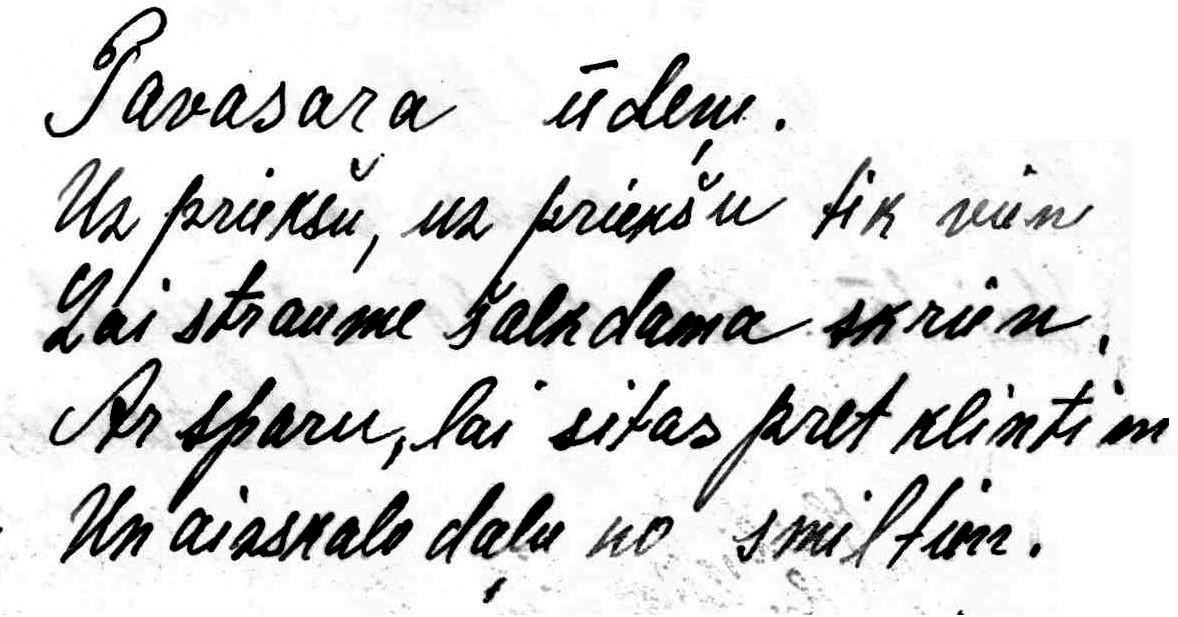 Pavasara ūdeņi.
Uz priekšu, uz priekšu tik vien
Lai straume šalkdama skrien,
Ar sparu, lai sitas pret klintīm
Un aizskalo daļu no smiltīm.